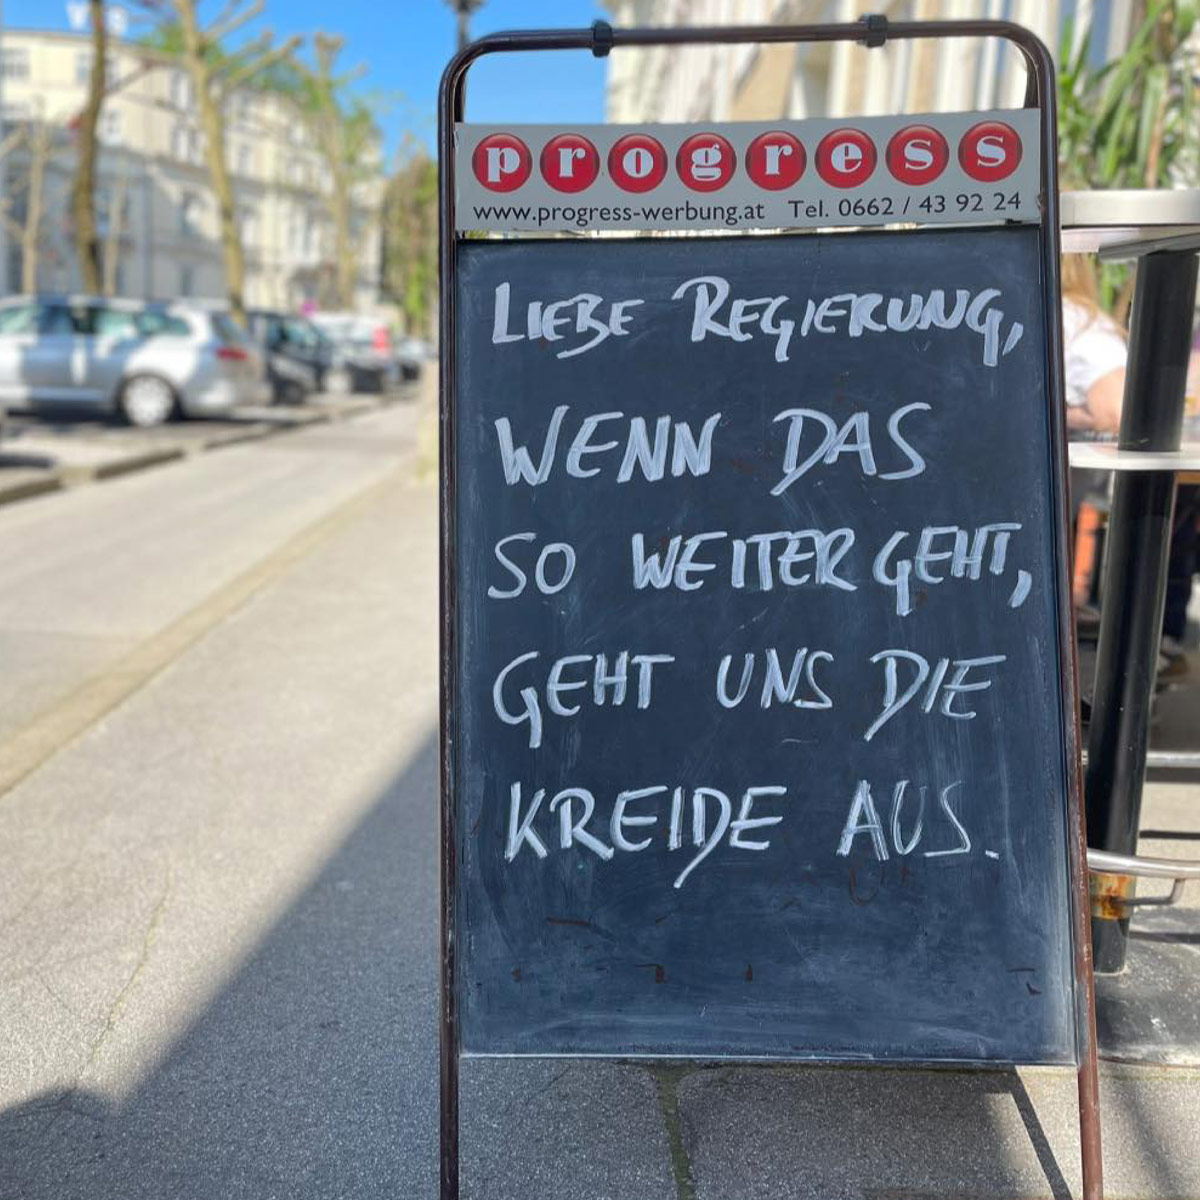 progress
www.progress-werbung.at Tel. 0662 / 43 92 24
LIEBE REGIERUNG,
WENN DAS
SO WEITER GEHT,
GEHT UNS DIE
KREIDE AUS.